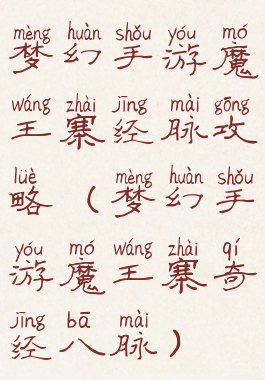 mèng huàn shǒu yóu mó
梦幻手游魔
wáng zhài jīng mài gōng
王寨经脉攻
lüè mèng huàn shǒu
略（梦幻手
yóu mó wáng zhài qí
游魔王寨奇
jīng bā mài
经八脉）